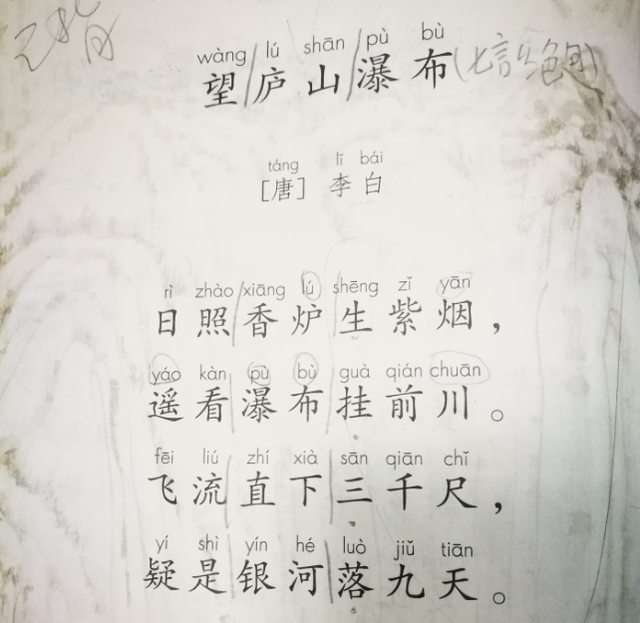 已背
wàng lú shān pù bù
望庐山瀑布(七言绝句)
táng lǐ bái
[唐] 李白
rì zhào xiāng lú shēng zǐ yān
日照香炉生紫烟，
yáo kàn pù bù guà qián chuān
遥看瀑布挂前川。
fēi liú zhí xià sān qiān chǐ
飞流直下三千尺，
yí shì yín hé luò jiǔ tiān
疑是银河落九天。